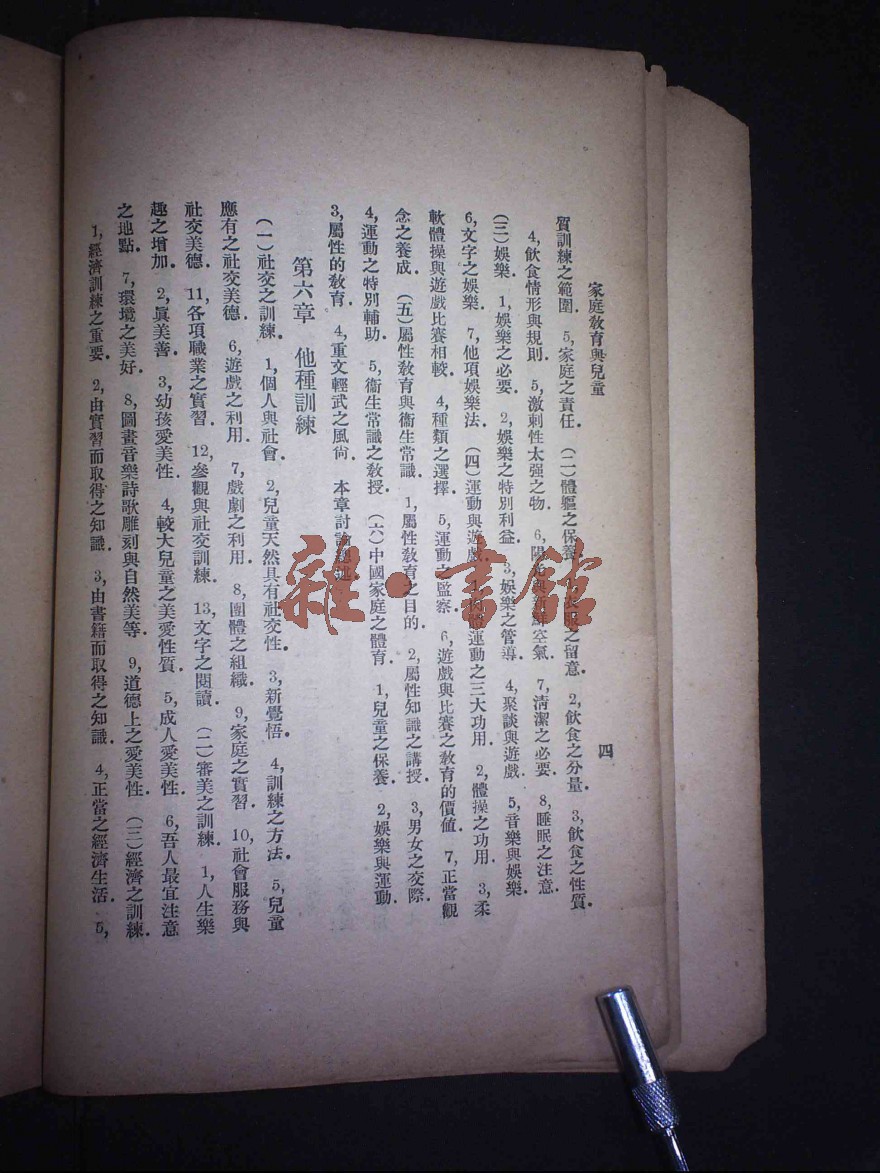 家庭教育與兒童
四
質訓練之範圍．5,家庭之責任．(二)體軀之保養　之留意．2,飲食之分量．3,飲食之性質．
4,飲食情形與規則．5,激刺性太强之物．6,陽光與新鮮空氣．7,淸潔之必要．8,睡眠之注意．
(三)娛樂．1,娛樂之必要．2,娛樂之特別利益．3,娛樂之管導．4,聚談與遊戲．5,音樂與娛樂．
6,文字之娛樂．7,他項娛樂法．(四)運動與遊戲．運動之三大功用．2,體操之功用．3,柔
軟體操與遊戲比賽相較．4,種類之選擇．5,運動之監察．6,遊戲與比賽之敎育的價値．7,正當觀
念之養成．(五)屬性敎育與衞生常識．1,屬性敎育之目的．2,屬性知識之講授．3,男女之交際．
4,運動之特別輔助．5,衞生常識之敎授．(六)中國家庭之體育．1,兒童之保養．2,娛樂與運動．
3,屬性的敎育．4,重文輕武之風尙．本章討論
第六章　他種訓練
(一)社交之訓練．1,個人與社會．2,兒童天然具有社交性．3,新覺悟．4,訓練之方法．5,兒童
應有之社交美德．6,遊戲之利用．7,戲劇之利用．8,團體之組織．9,家庭之實習．10,社會服務與
社交美德．11,各項職業之實習．12,參觀與社交訓練．13,文字之閱讀．(二)審美之訓練．1,人生樂
趣之增加．2,眞美善．3,幼孩愛美性．4,較大兒童之美愛性質．5,成人愛美性．6,吾人最宜注意
之地點．7,環境之美好．8,圖畫音樂詩歌雕刻與自然美等．9,道德上之愛美性．(三)經濟之訓練．
1,經濟訓練之重要．2,由實習而取得之知識．3,由書籍而取得之知識．4,正當之經濟生活．5,
雜·書館